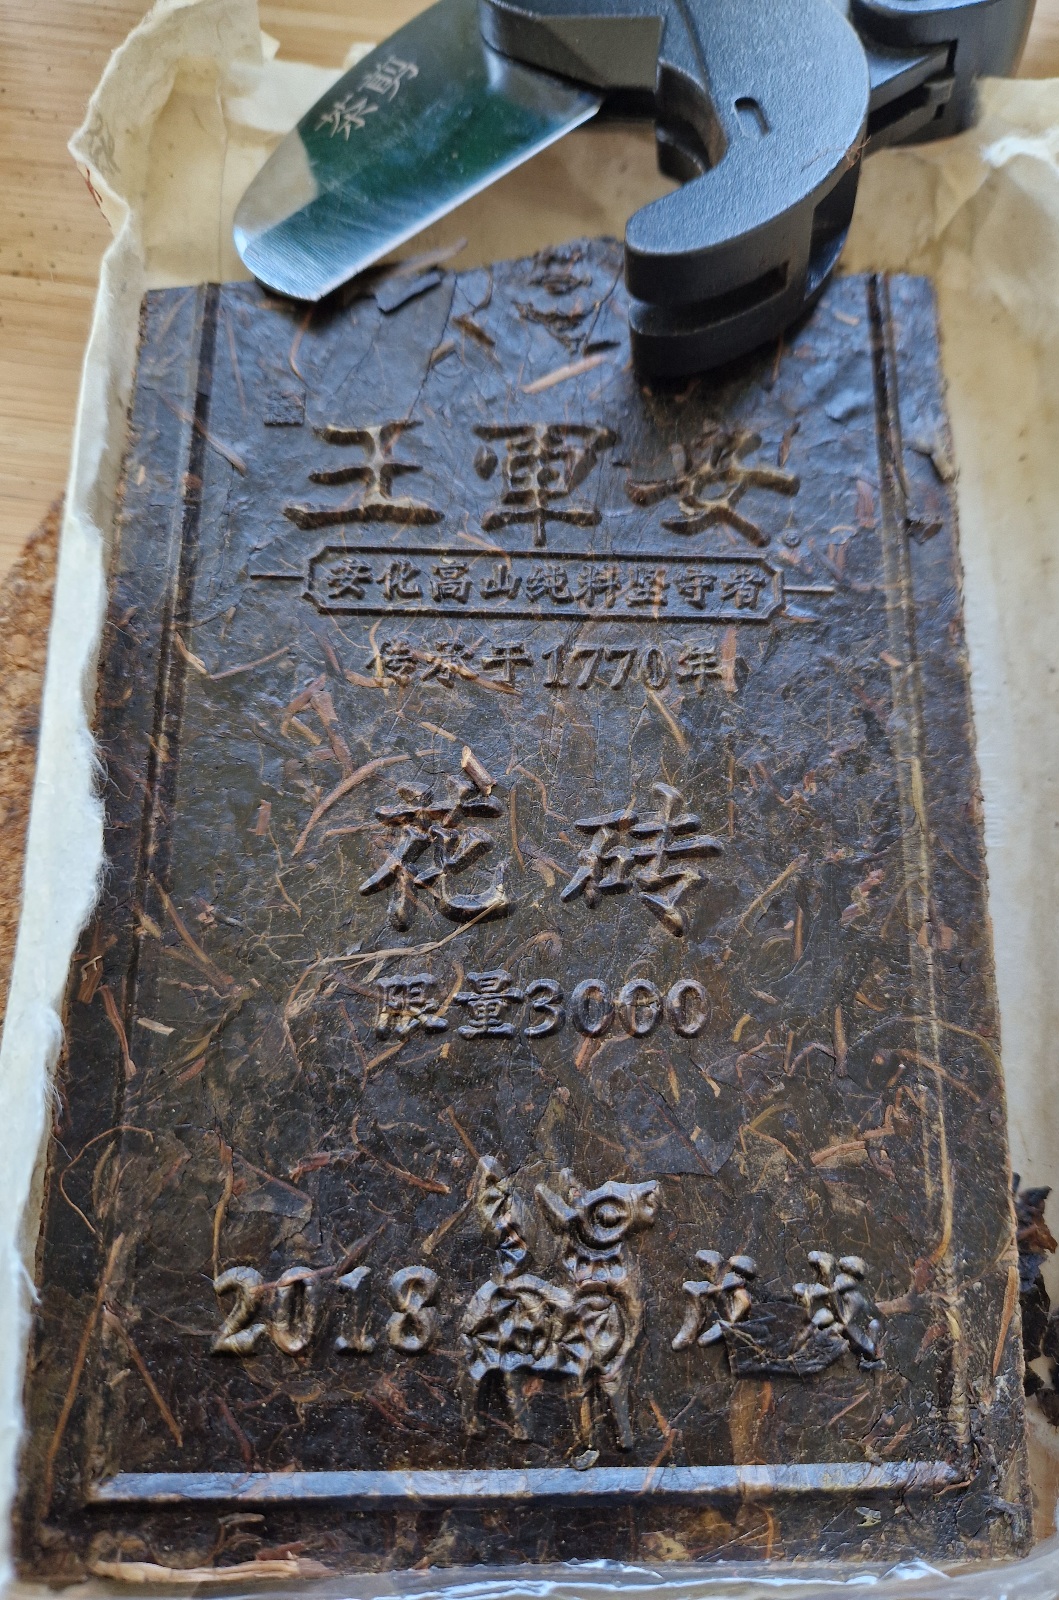 茶剪
王軍安
安化高山纯料坚守者
传承于1770年
花砖
限量3000
2018 戊戌